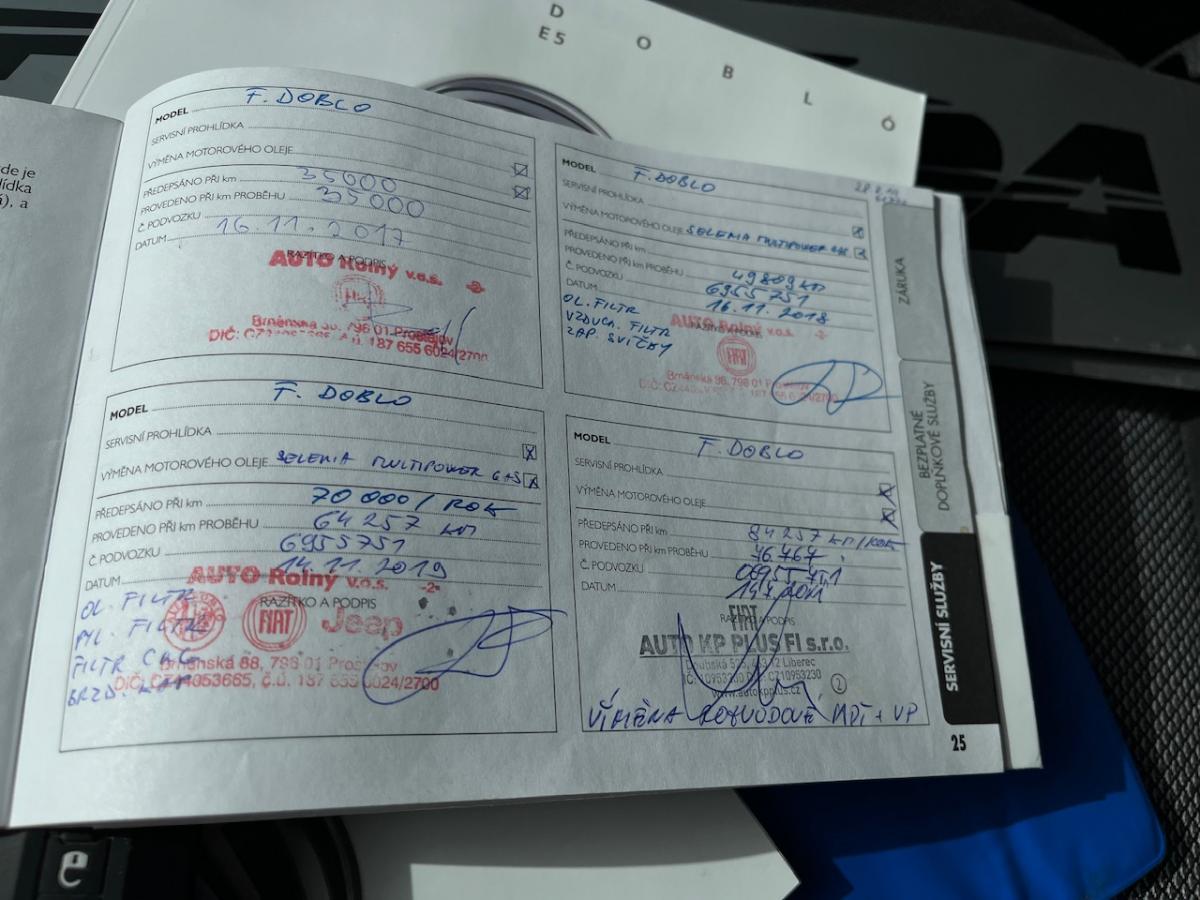 D O B L Ó
E5
de je
lídka
), a
MODEL F. DOBLO
SERVISNÍ PROHLÍDKA
VÝMĚNA MOTOROVÉHO OLEJE
PŘEDEPSÁNO PŘI km 35000
PROVEDENO PŘI km PROBĚHU 35000
Č. PODVOZKU
DATUM 16.11.2017
RAZÍTKO A PODPIS
AUTO Rolný v.o.s. -2-
796 01 Prostějov
DIČ: č.ú. 187 655 6024/2700
MODEL F. DOBLO
SERVISNÍ PROHLÍDKA
VÝMĚNA MOTOROVÉHO OLEJE SELENIA MULTIPOWER GAS
PŘEDEPSÁNO PŘI km
PROVEDENO PŘI km PROBĚHU 49809 km
Č. PODVOZKU 6955751
DATUM 16.11.2018
OL. FILTR
VZDUCH. FILTR
ZAP. SVÍČKY
RAZÍTKO A PODPIS
AUTO Rolný v.o.s. -2-
FIAT
Brněnská 98, 796 01
MODEL F. DOBLO
SERVISNÍ PROHLÍDKA
VÝMĚNA MOTOROVÉHO OLEJE SELENIA MULTIPOWER GAS
PŘEDEPSÁNO PŘI km 70 000/ROK
PROVEDENO PŘI km PROBĚHU 64257 km
Č. PODVOZKU 6955751
DATUM 14.11.2019
OL. FILTR
PYL. FILTR
FILTR CNG
BRZD.
AUTO Rolný v.o.s. -2-
RAZÍTKO A PODPIS
FIAT Jeep
796 01 Prostějov
DIČ: CZ44053665, č.ú. 187 655 6024/2700
MODEL F. DOBLO
SERVISNÍ PROHLÍDKA
VÝMĚNA MOTOROVÉHO OLEJE
PŘEDEPSÁNO PŘI km 84257 km/ROK
PROVEDENO PŘI km PROBĚHU
Č. PODVOZKU
DATUM
RAZÍTKO A PODPIS
FIAT
AUTO KP PLUS FI s.r.o.
Doubská 525, 463 12 Liberec
IČ: 10953230 DIČ: CZ10953230
www.autokpplus.cz
2
VÍMĚNA
ZÁRUKA
BEZPLATNÉ
DOPLŇKOVÉ SLUŽBY
SERVISNÍ SLUŽBY
25
e